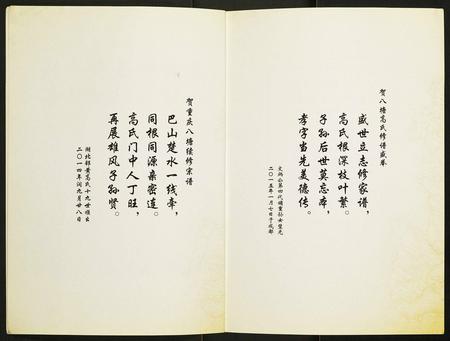 贺八塘高氏修谱盛举
盛世立志修家谱，
高氏根深枝叶繁。
子孙后世莫忘本，
孝字当先美德传。
二〇一五年一月七日于成都
贺重庆八塘续修宗谱
巴山楚水一线牵，
同根同源亲密连。
高氏门中人丁旺，
再展雄风子孙贤。
湖北郧黄高氏十九世顺台
二〇一四年闰九月廿八日